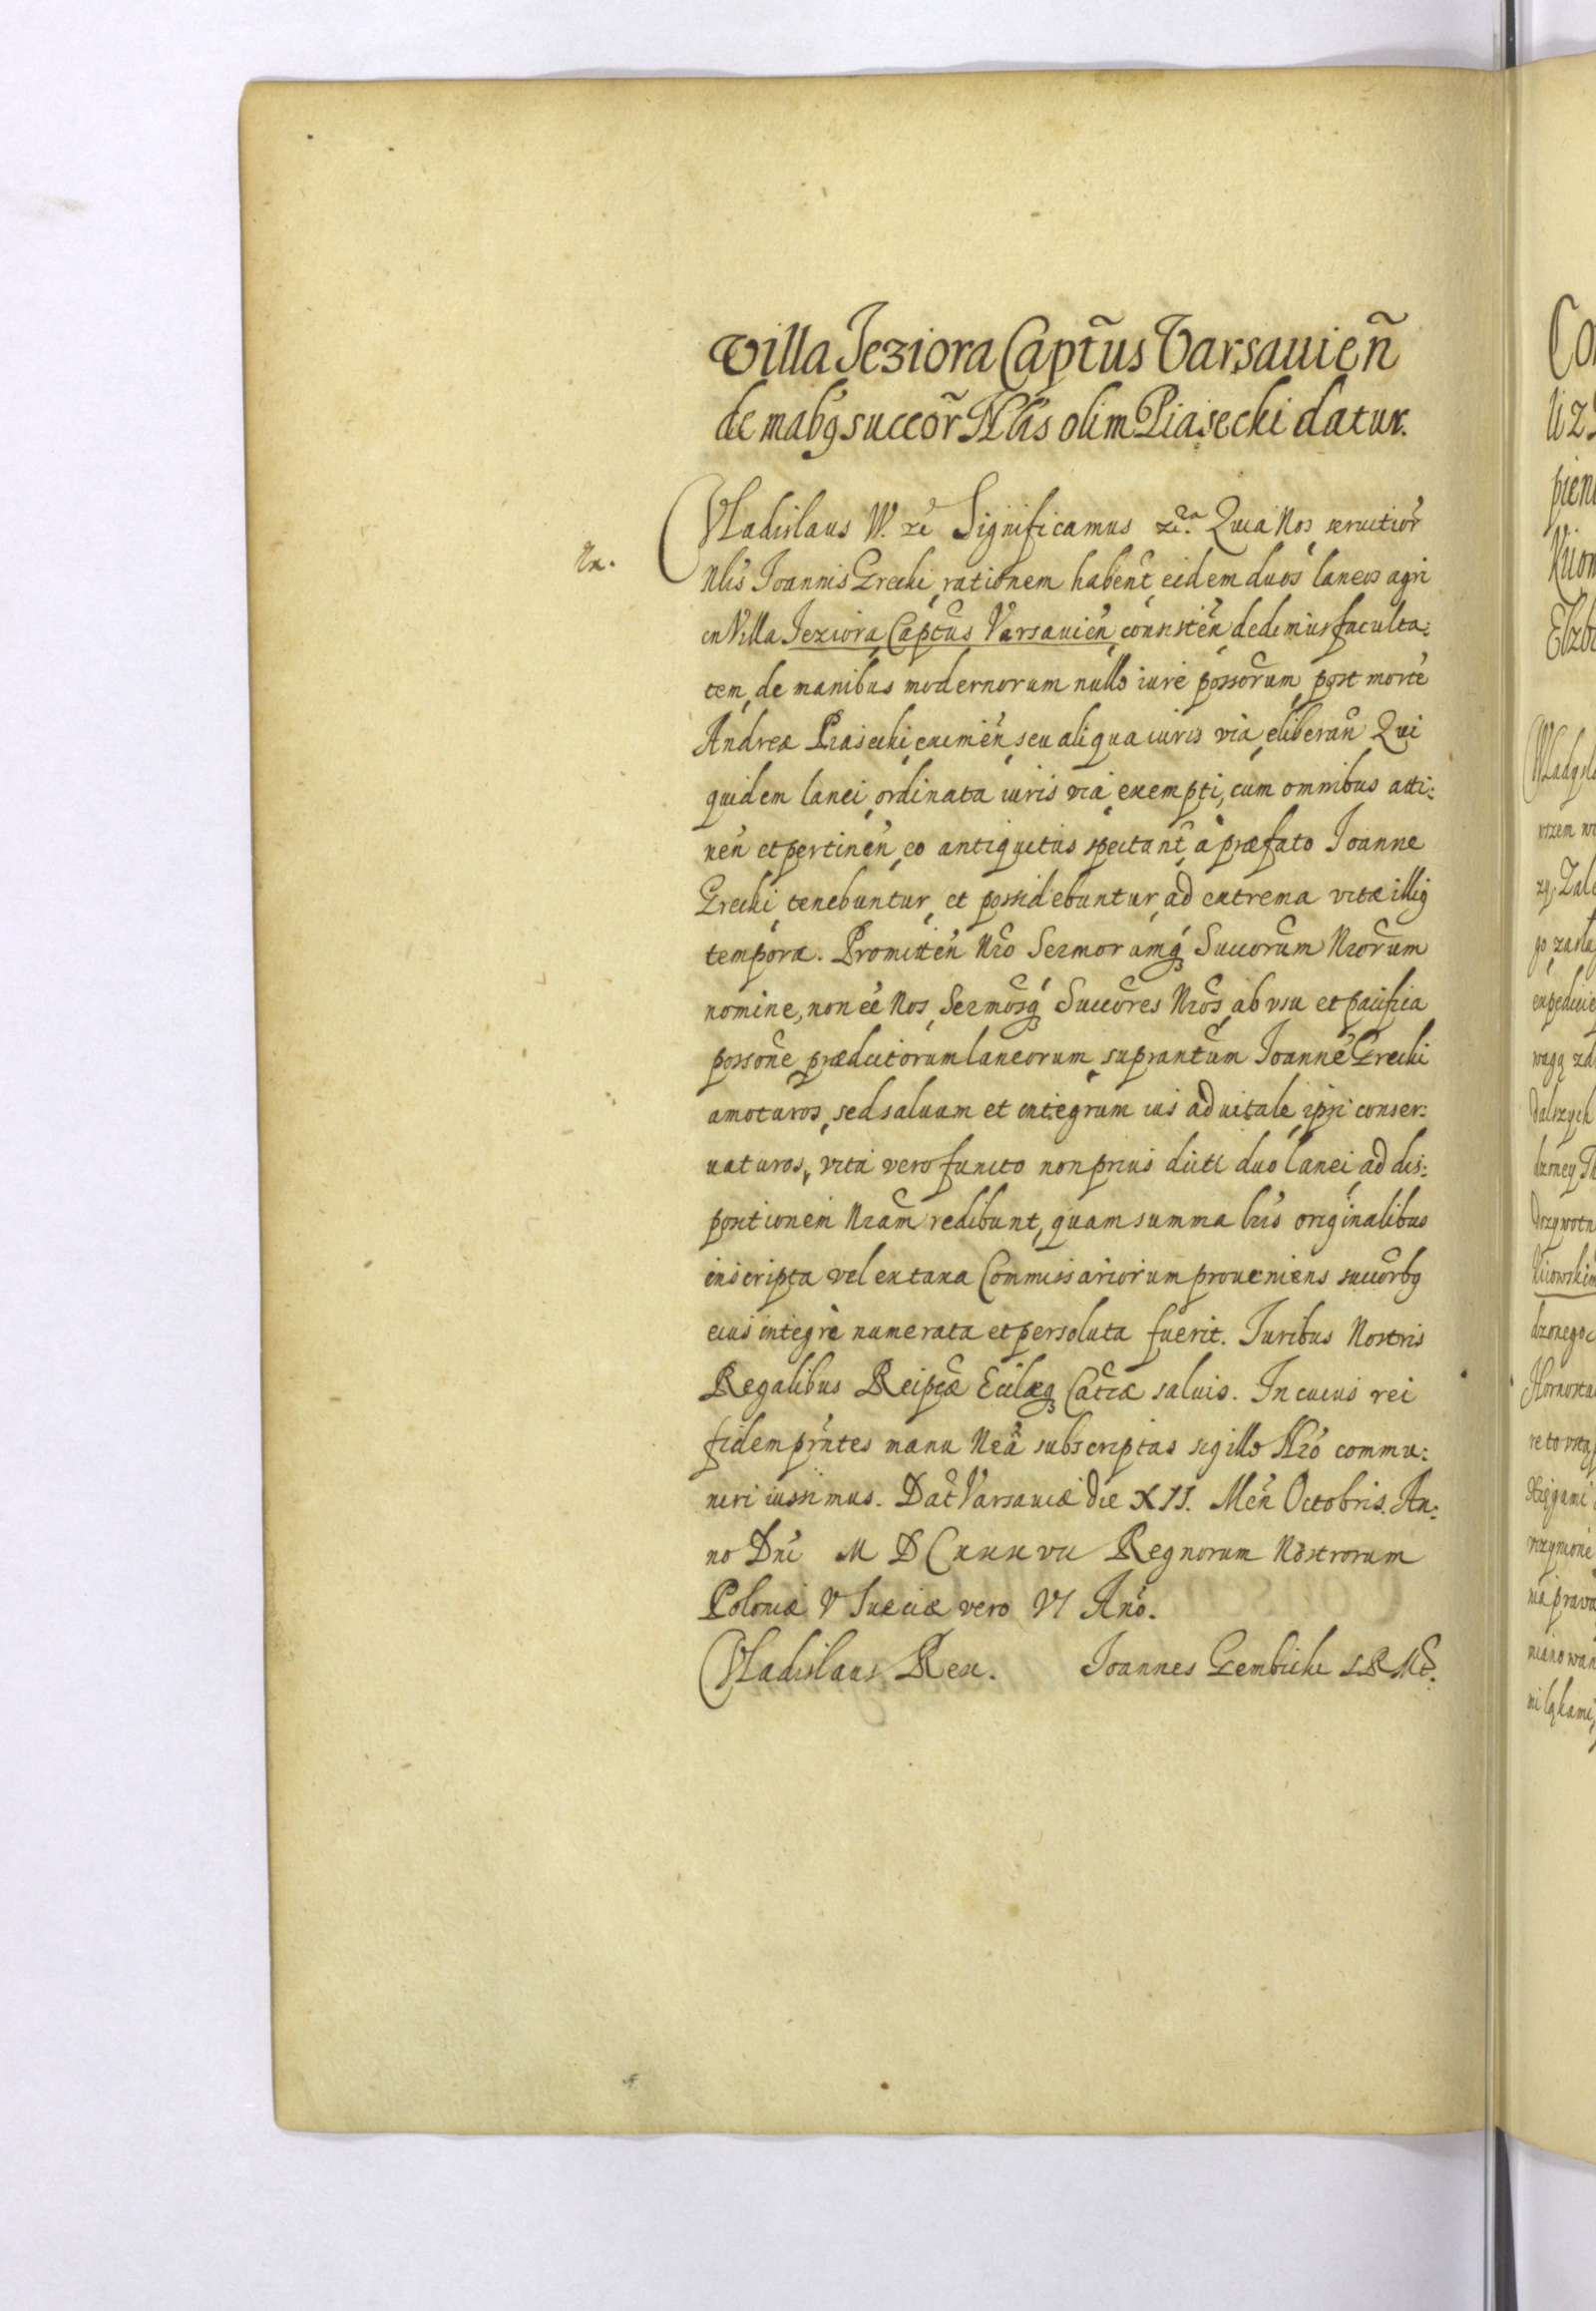 Villa Jeziora Capt̃us Varsauieñ
de mãbg succor̃ Nlis olim Piasecki datur.
Vladislaus IV. etc Significamus etc.ra Quia Nos, seruitior̃
Nx.
Nlis Joannis Grecki, rationem habent̃, eidem duos laneos agri
in Villa Jeziora, Capt̃us Varsauień, consisteń, dedimus faculta:
tem, de manibus modernorum nullo iure possor̃um, post mortẽ
Andreæ Piasecki, eximeń, seu aliqua iuris via, eliberañ. Qui
quidem lanei, ordinata iuris via, exempti, cum omnibus atti:
neń et pertineń, eo antiquitus spectant̃, à præfato Joanne
Grecki, tenebuntur, et possidebuntur, ad extrema vitæ illig
tempora. Promitteń Nrõ Sermorumq́ Succor̃um Nror̃um
nomine, non eẽ Nos, Sermõsq́ Succõres Nrõs, ab vsu et pacifica
possoñe prædictorum laneorum, suprant̃um Joannẽ Grecki
amoturos, sed saluum et integrum ius aduitale, ipsi conser:
uaturos, vita vero functo non prius dicti duo lanei, ad dis:
positionem Nrãm redibunt, quam summa lris̃ originalibus
inscripta vel ex taxa Commissariorum proueniens succorbg
eius integrè numerata et persoluta fuerit. Juribus Nostris
Regalibus Reipcæ̃ Ecclæq Catc̃æ saluis. In cuius rei
fidem pr̃ntes manu Nrã subscriptas sigillo Nrõ commu:
niri iussimus. Dat̃ Varsauiæ die XII. Meń Octobris. An:
no Dnĩ M D C xxx vii Regnorum Nostrorum
Poloniæ V Sueciæ vero VI Anõ.
Vladislaus Rex. Joannes Gembicki S.R.M.S.